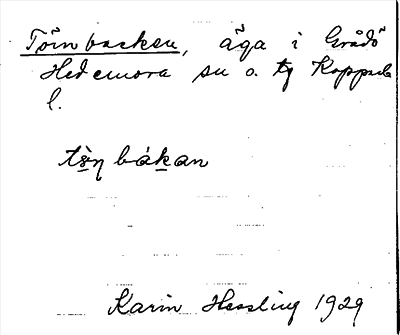 Törnbacken, äga i Grådö
Hedemora sn o. tg Kopparb
l.
tɵ̀ṇ bákan
Karin Hessling 1929